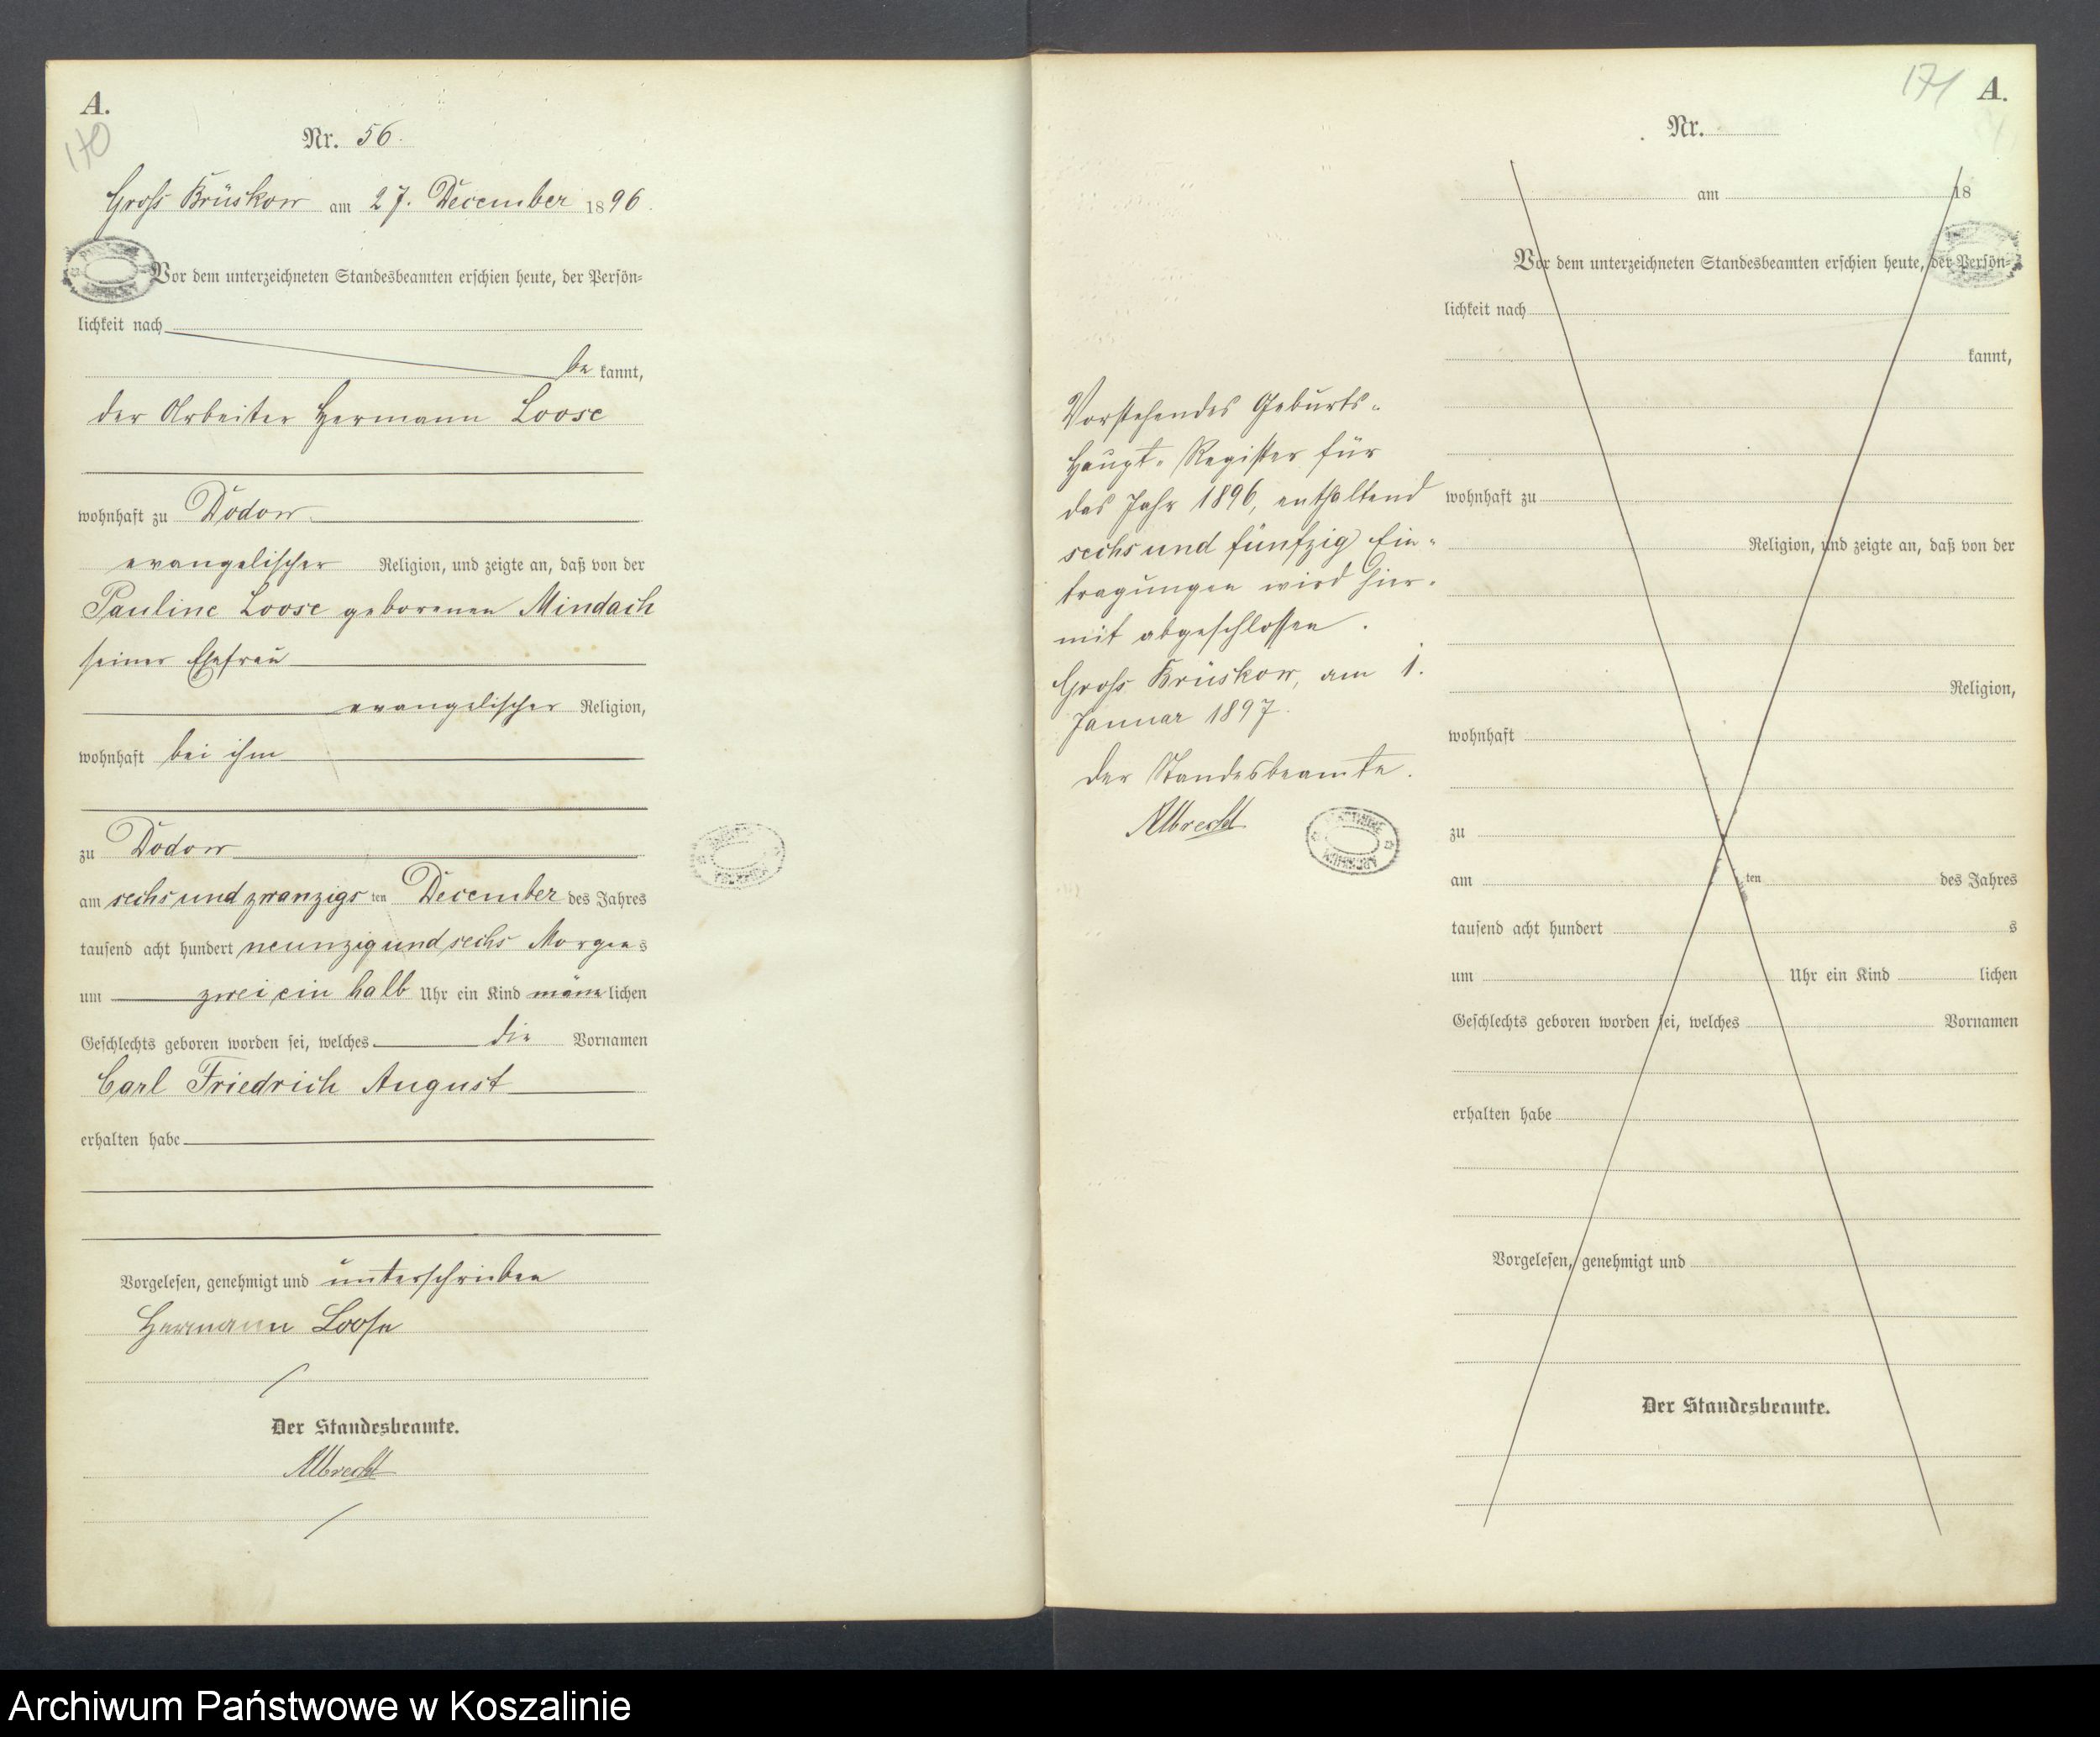 A.
170
Nr. 56.
Gross Brüskow am 27. December 1896.
Vor dem unterzeichneten Standesbeamten erschien heute, der Persön-
lichkeit nach
be kannt,
der Arbeiter Hermann Loose
wohnhaft zu Dodow
evangelischer Religion, und zeigte an, daß von der
Pauline Loose geborenen Mindach
seiner Ehefrau
evangelischer Religion,
wohnhaft bei ihm
zu Dodow
am sechs und zwanzigs ten December des Jahres
tausend acht hundert neunzig und sechs Morgens
um zwei ein halb Uhr ein Kind männlichen
Geschlechts geboren worden sei, welches die Vornamen
Carl Friedrich August
erhalten habe
Vorgelesen, genehmigt und unterschrieben
Hermann Loose
Der Standesbeamte.
Albrecht
171 A.
Nr.
am 18
Vor dem unterzeichneten Standesbeamten erschien heute, der Persön-
lichkeit nach
kannt,
Vorstehendes Geburts-
Haupt-Register für
das Jahr 1896, enthaltend
sechs und fünfzig Ein-
tragungen wird hier-
mit abgeschlossen.
Gross Brüskow, am 1.
Januar 1897.
Der Standesbeamte.
Albrecht
wohnhaft zu
Religion, und zeigte an, daß von der
Religion,
wohnhaft
zu
am ten des Jahres
tausend acht hundert s
um Uhr ein Kind lichen
Geschlechts geboren worden sei, welches Vornamen
erhalten habe
Vorgelesen, genehmigt und
Der Standesbeamte.
Archiwum Państwowe w Koszalinie